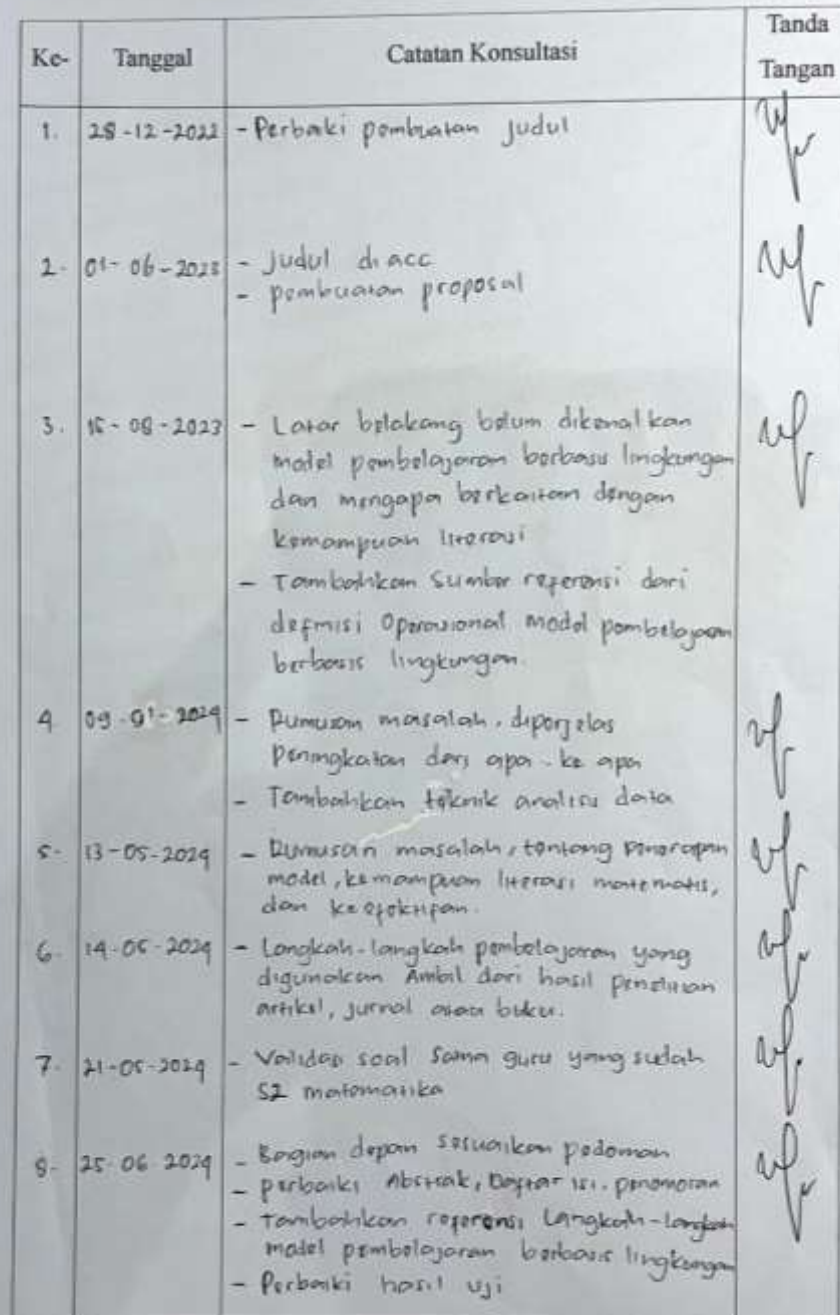 Ke- Tanggal Catatan Konsultasi Tanda Tangan
1. 28-12-2022 - Perbaiki pembuatan judul
2. 01-06-2023 - Judul di acc
- pembuatan proposal
3. 15-08-2023 - Latar belakang belum dikenalkan
model pembelajaran berbasis lingkungan
dan mengapa berkaitan dengan
kemampuan literasi
- Tambahkan sumber referensi dari
definisi Operasional model pembelajaran
berbasis lingkungan.
4 09-01-2024 - Rumusan masalah, diperjelas
peningkatan dari apa - ke apa
- Tambahkan teknik analisis data
5. 13-05-2024 - Rumusan masalah, tentang penerapan
model, kemampuan literasi matematis,
dan keefektifan.
6. 14-05-2024 - Langkah-langkah pembelajaran yang
digunakan Ambil dari hasil penelitian
artikel, jurnal atau buku.
7. 21-05-2024 - Validasi soal sama guru yang sudah
S2 matematika
8- 25-06 2024 - Bagian depan sesuaikan pedoman
- perbaiki Abstrak, Daftar isi, penomoran
- Tambahkan referensi Langkah-langkah
model pembelajaran berbasis lingkungan
- Perbaiki hasil uji